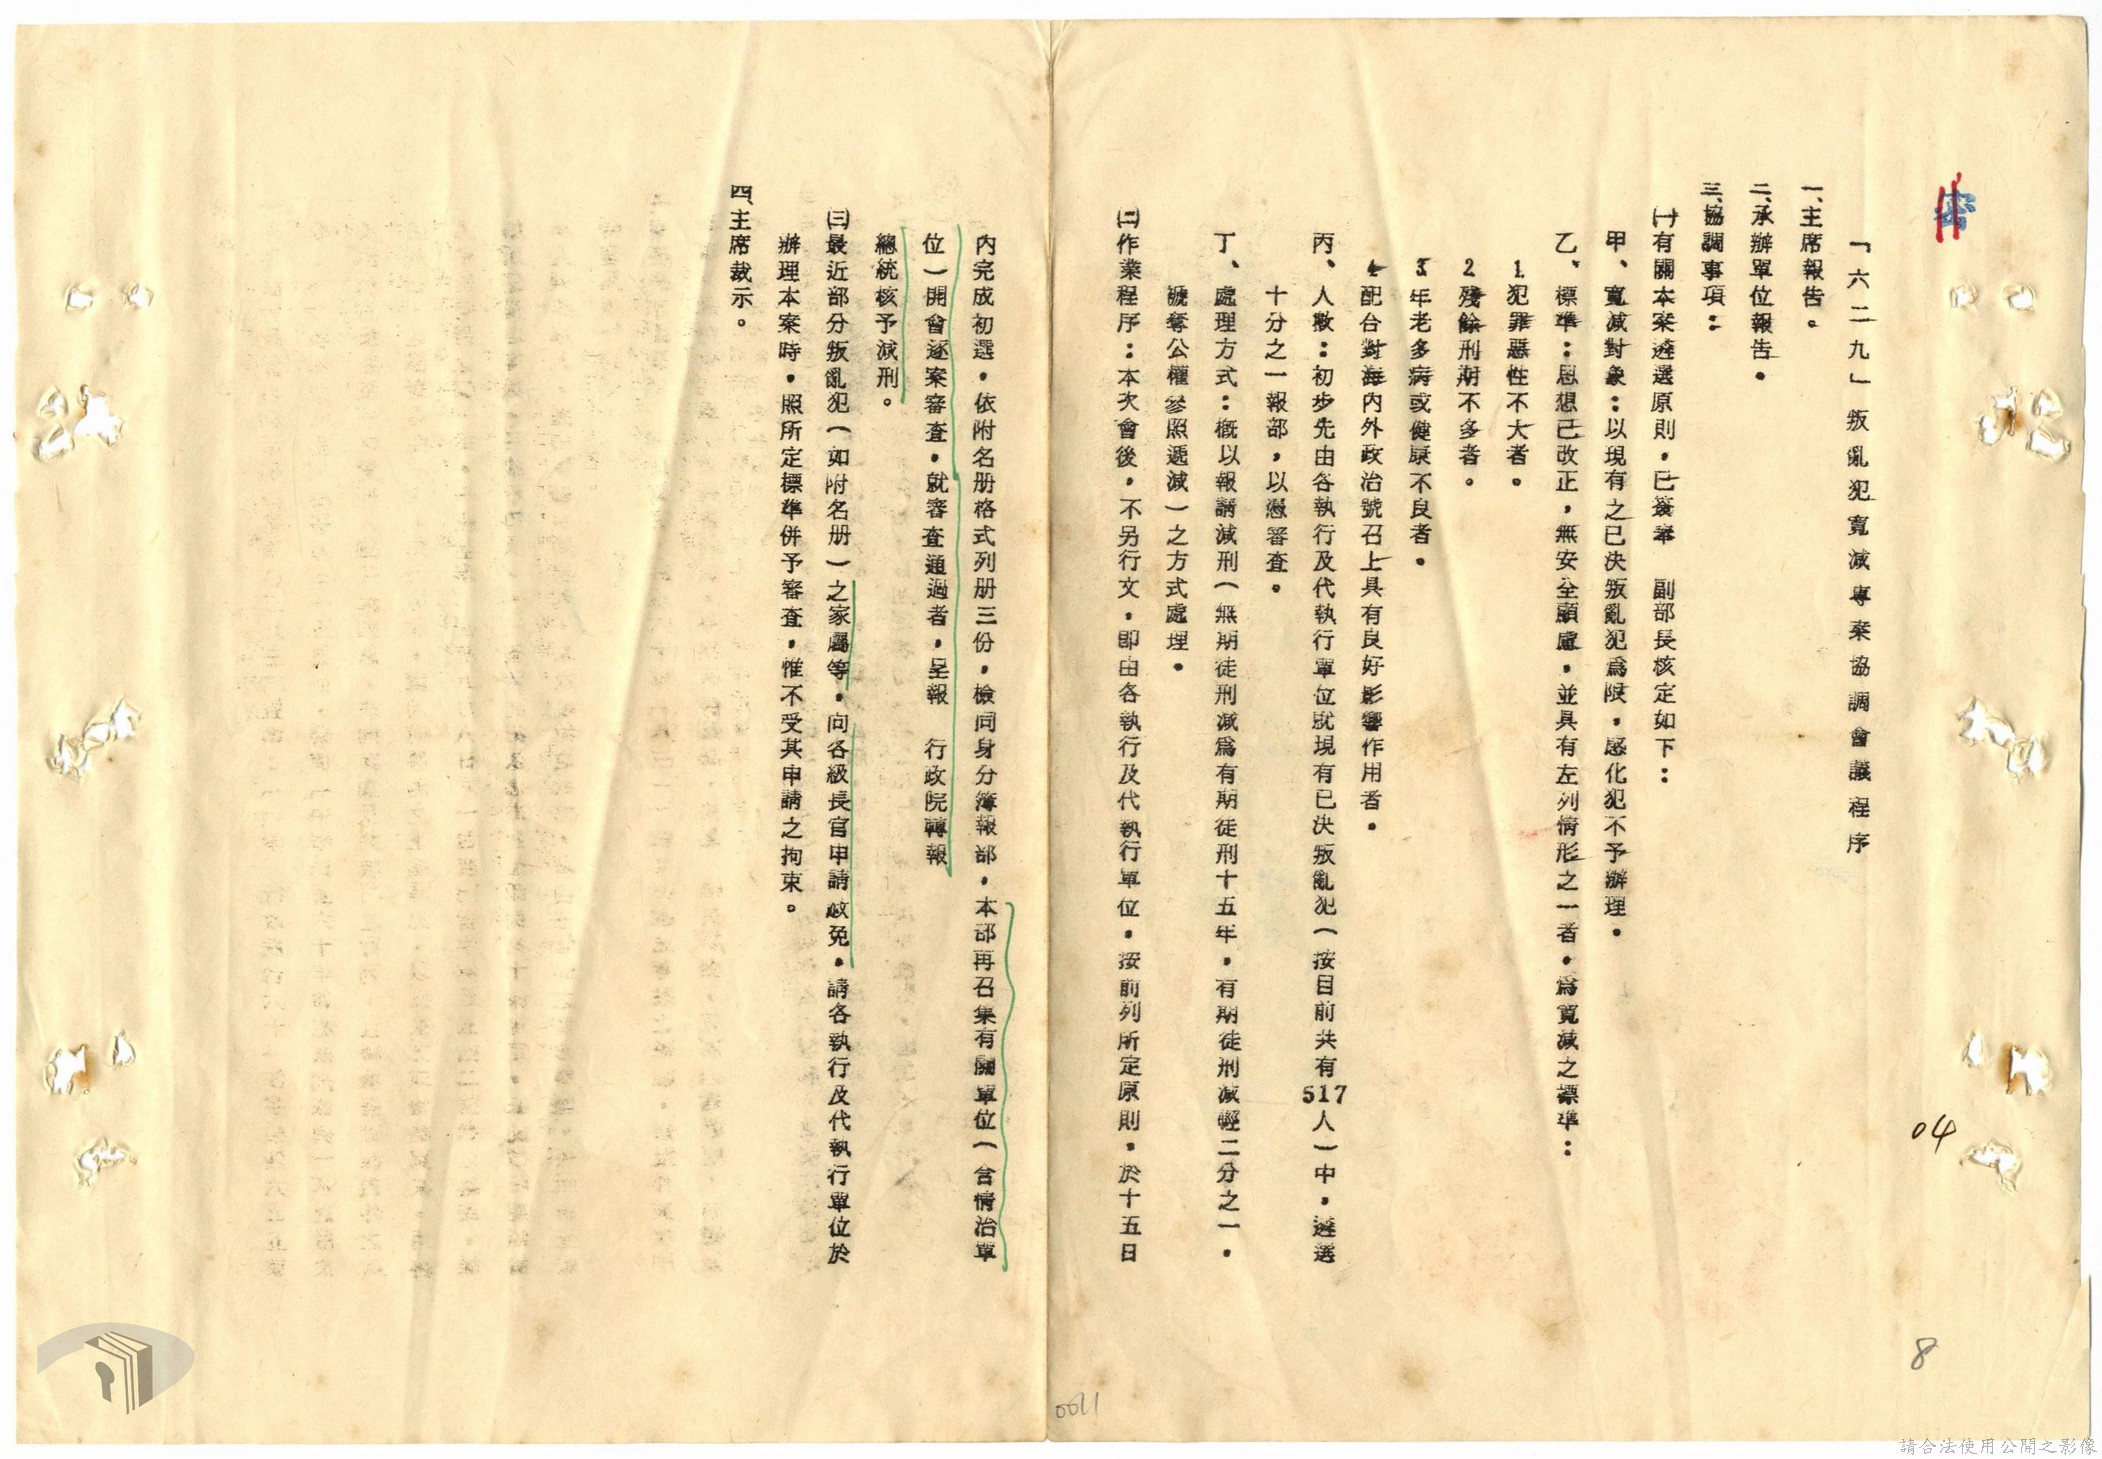 密
「六二九」叛亂犯寬減專案協調會議程序
一、主席報告。
二、承辦單位報告。
三、協調事項：
㈠有關本案遴選原則，已簽奉　副部長核定如下：
甲、寬減對象：以現有之已決叛亂犯為限，感化犯不予辦理。
乙、標準：思想已改正，無安全顧慮，並具有左列情形之一者，為寬減之標準：
1 犯罪惡性不大者。
2 殘餘刑期不多者。
3 年老多病或健康不良者。
4 配合對海內外政治號召上具有良好影響作用者。
丙、人數：初步先由各執行及代執行單位就現有已決叛亂犯（按目前共有517人）中，遴選
十分之一報部，以憑審查。
丁、處理方式：概以報請減刑（無期徒刑減為有期徒刑十五年，有期徒刑減輕二分之一，
褫奪公權參照遞減）之方式處理。
㈡作業程序：本次會後，不另行文，即由各執行及代執行單位，按前列所定原則，於十五日
內完成初選，依附名册格式列册三份，檢同身分簿報部，本部再召集有關單位（含情治單
位）開會逐案審查，就審查通過者，呈報　行政院轉報
總統核予減刑。
㈢最近部分叛亂犯（如附名册）之家屬等，向各級長官申請赦免，請各執行及代執行單位於
辦理本案時，照所定標準併予審查，惟不受其申請之拘束。
四、主席裁示。
04
8
0011
請合法使用公開之影像